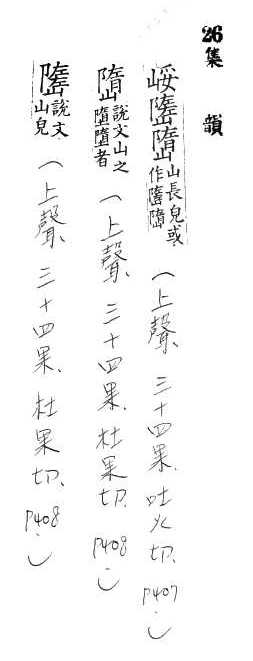 26集 韻
嶞山長皃或作（上聲、三十四果、吐火切、P407。）
嶞說文山之墮墮者（上聲、三十四果、杜果切、P408。）
說文山皃（上聲、三十四果、杜果切、P408。）